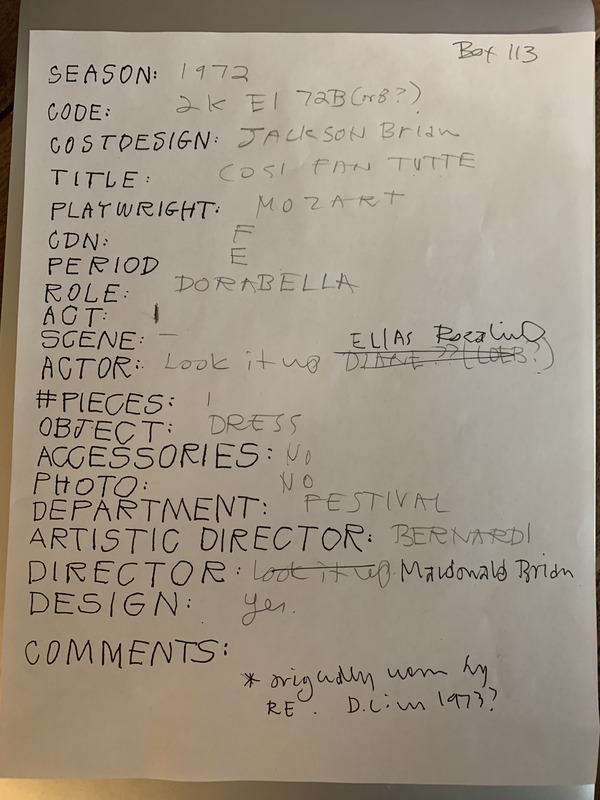 Box 113
SEASON: 1972
CODE: 2K E1 72B (or8?)
COSTDESIGN: JACKSON Brian
TITLE: COSI FAN TUTTE
PLAYWRIGHT: MOZART
CDN: F
PERIOD E
ROLE: DORABELLA
ACT: 1
SCENE: —
ELIAS Rosalind
ACTOR: Look it up DIANE ?? (LOEB?)
#PIECES: 1
OBJECT: DRESS
ACCESSORIES: NO
PHOTO: NO
DEPARTMENT: FESTIVAL
ARTISTIC DIRECTOR: BERNARDI
DIRECTOR: Look it up Macdonald Brian
DESIGN: yes.
COMMENTS:
* originally worn by
RE. D.L. in 1973?